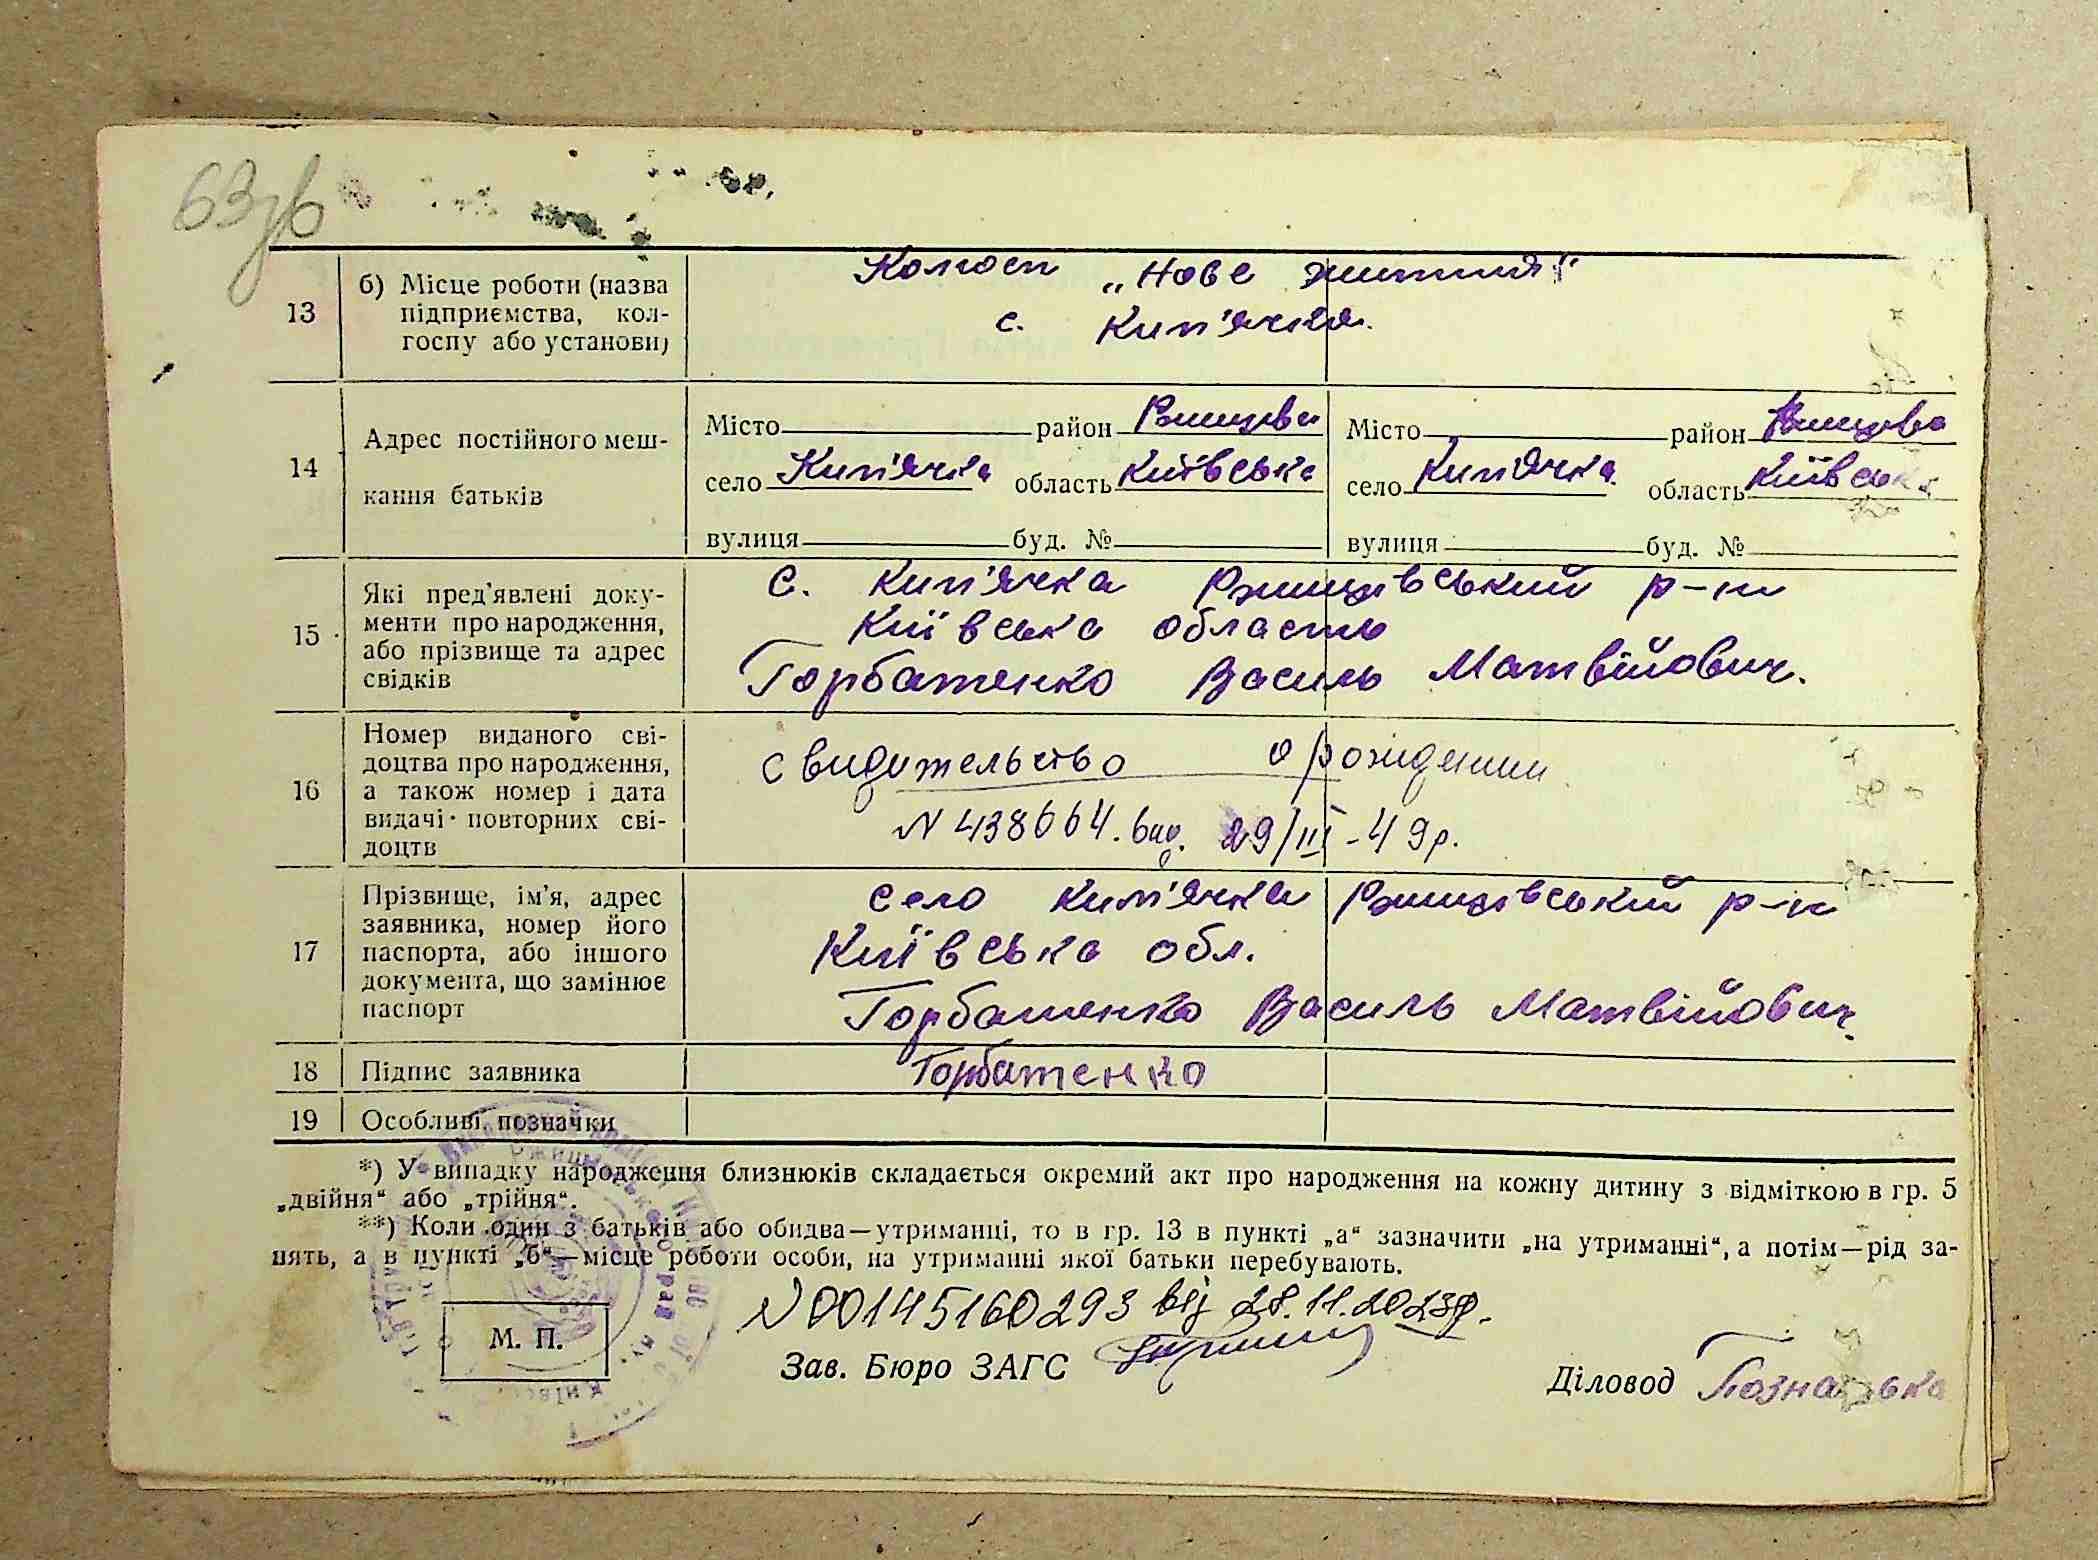 63зв
13 б) Місце роботи (назва підприємства, колгоспу або установи) Колгосп „Нове життя"
с. Кип'ячка.
14 Адрес постійного меш-
кання батьків
Місто район Ржищевс Місто район Ржищевс
село Кип'ячка область Київська село Кип'ячка область Київська
вулиця буд. № вулиця буд. №
15 Які пред'явлені доку-
менти про народження,
або прізвище та адрес
свідків
С. Кип'ячка Ржищівський р-н
Київська область
Горбатенко Василь Матвійович.
16 Номер виданого сві-
доцтва про народження,
а також номер і дата
видачі повторних сві-
доцтв
свидительство о рождении
N 438664. вид. 29/III-49р.
17 Прізвище, ім'я, адрес
заявника, номер його
паспорта, або іншого
документа, що замінює
паспорт
Село Кип'ячка Ржищівський р-н
Київська обл.
Горбатенко Василь Матвійович
18 Підпис заявника Горбатенко
19 Особливі позначки
*) У випадку народження близнюків складається окремий акт про народження на кожну дитину з відміткою в гр. 5
„двійня“ або „трійня“.
**) Коли один з батьків або обидва—утриманці, то в гр. 13 в пункті „а“ зазначити „на утриманні“, а потім—рід за-
нять, а в пункті „б“—місце роботи особи, на утриманні якої батьки перебувають.
N 00145160293 від 28.11.2023р.
М. П.
Зав. Бюро ЗАГС
Діловод